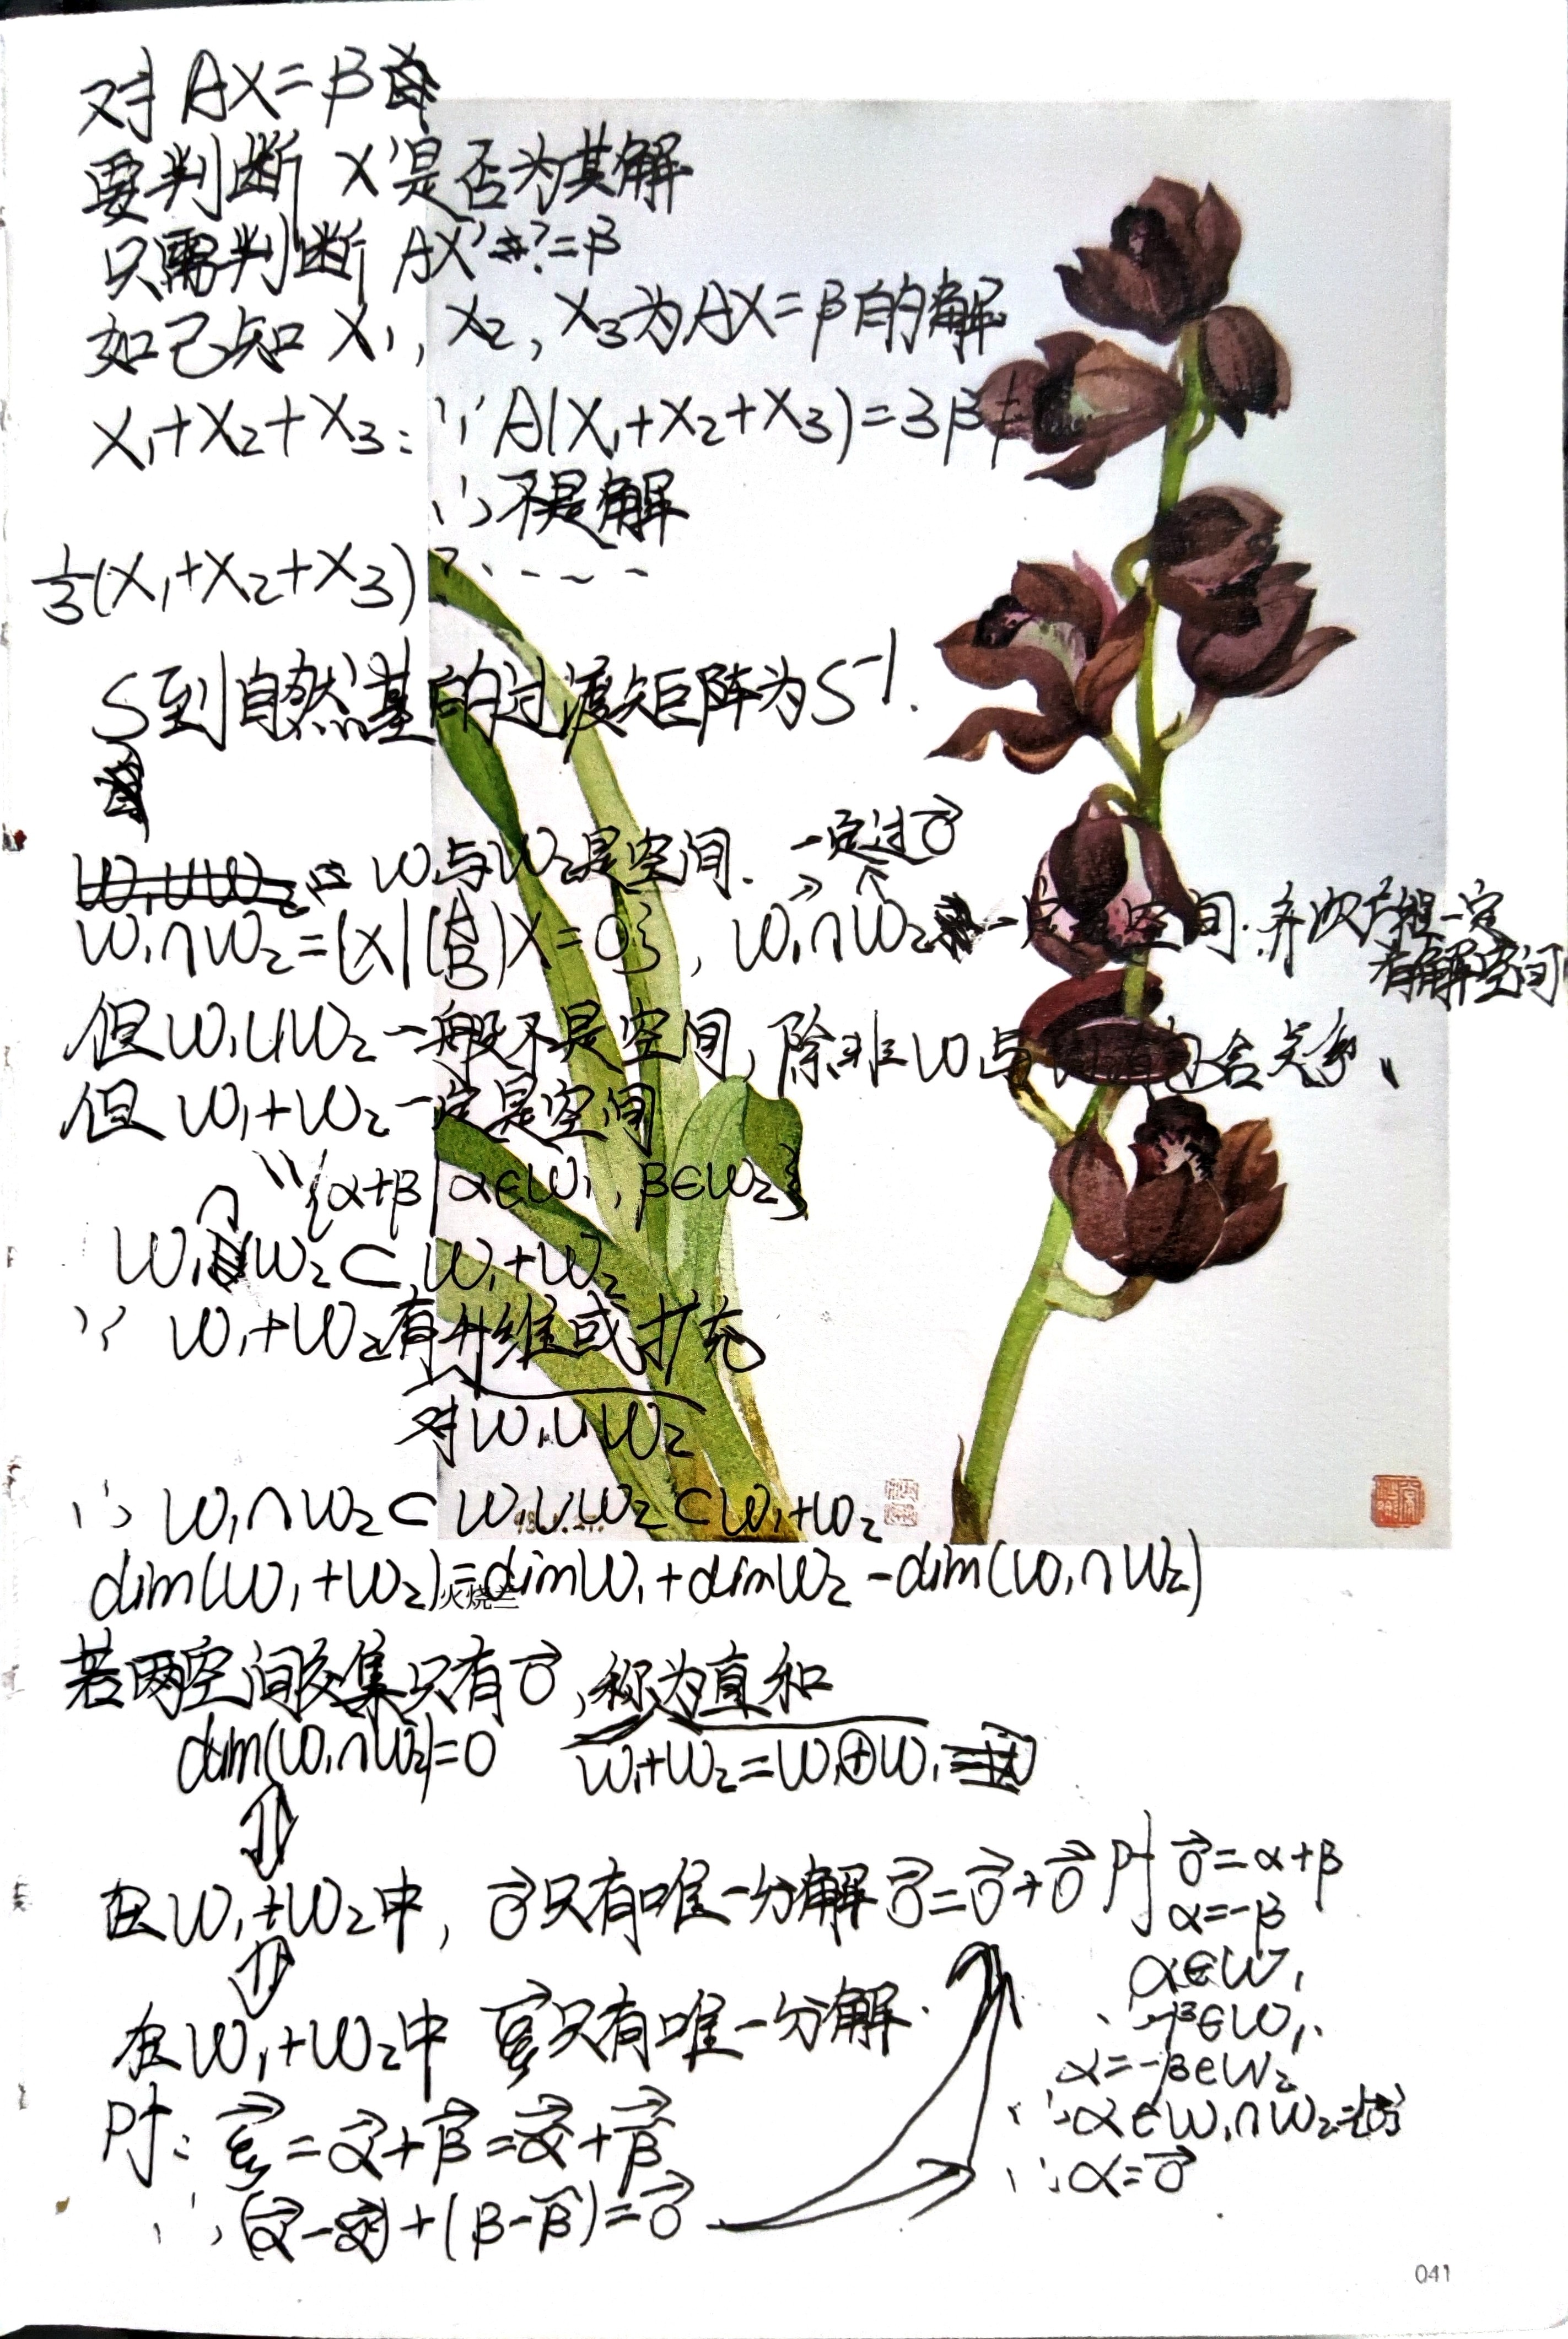 对 AX=β
要判断 X'是否为其解
只需判断 AX'?=β
如己知 X₁, X₂, X₃为AX=β的解
X₁+X₂+X₃: ∵ A(X₁+X₂+X₃)=3β≠
∴不是解
⅓(X₁+X₂+X₃)
S到自然基的过渡矩阵为S⁻¹.
W与W₂是空间. 一定过0⃗
W₁∩W₂={X|(A B)X=0}, W₁∩W₂一定 空间. 齐次方程一定
有解空间
但W₁∪W₂一般不是空间, 除非W与 包含关系、
但 W₁+W₂一定是空间
{α+β|α∈W₁, β∈W₂}
W₁∩W₂⊂W₁+W₂
∵ W₁+W₂有升维或扩充
对W₁∪W₂
∴ W₁∩W₂⊂W₁∪W₂⊂W₁+W₂
dim(W₁+W₂)=dimW₁+dimW₂-dim(W₁∩W₂)
火烧兰
若两空间交集只有0⃗, 称为直和
dim(W₁∩W₂)=0 W₁+W₂=W₁⊕W₁
⇕
在W₁+W₂中, 0⃗只有唯一分解0⃗=0⃗+0⃗ Pf 0⃗=α+β
α=-β
⇕
α∈W₁
在W₁+W₂中 ξ⃗只有唯一分解.
∴-β∈W₁.
α=-β∈W₂
Pf: ξ⃗=α⃗+β⃗=α̅⃗+β̅⃗
∴α∈W₁∩W₂={0⃗}
∴α=0⃗
∴(α⃗-α̅⃗)+(β-β̅)=0⃗
041